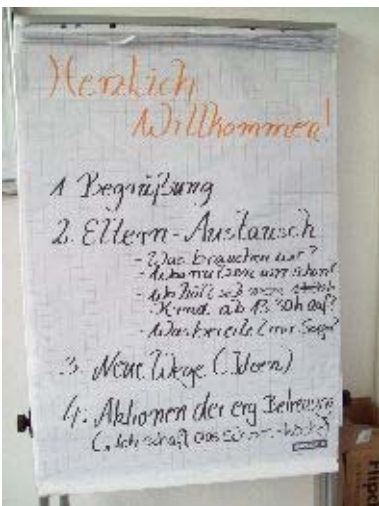 Herzlich
Willkommen!
1. Begrüßung
2. Eltern-Austausch
- Was brauchen wir?
- Wo nutzen wir schon?
- Wo hält sich mein
Kind ab 13:30h auf?
- Was bereitet mir Sorge?
3. Neue Wege (Ideen)
4. Aktionen der erg. Betreuung
("Ich schaff das schon"
Flipc